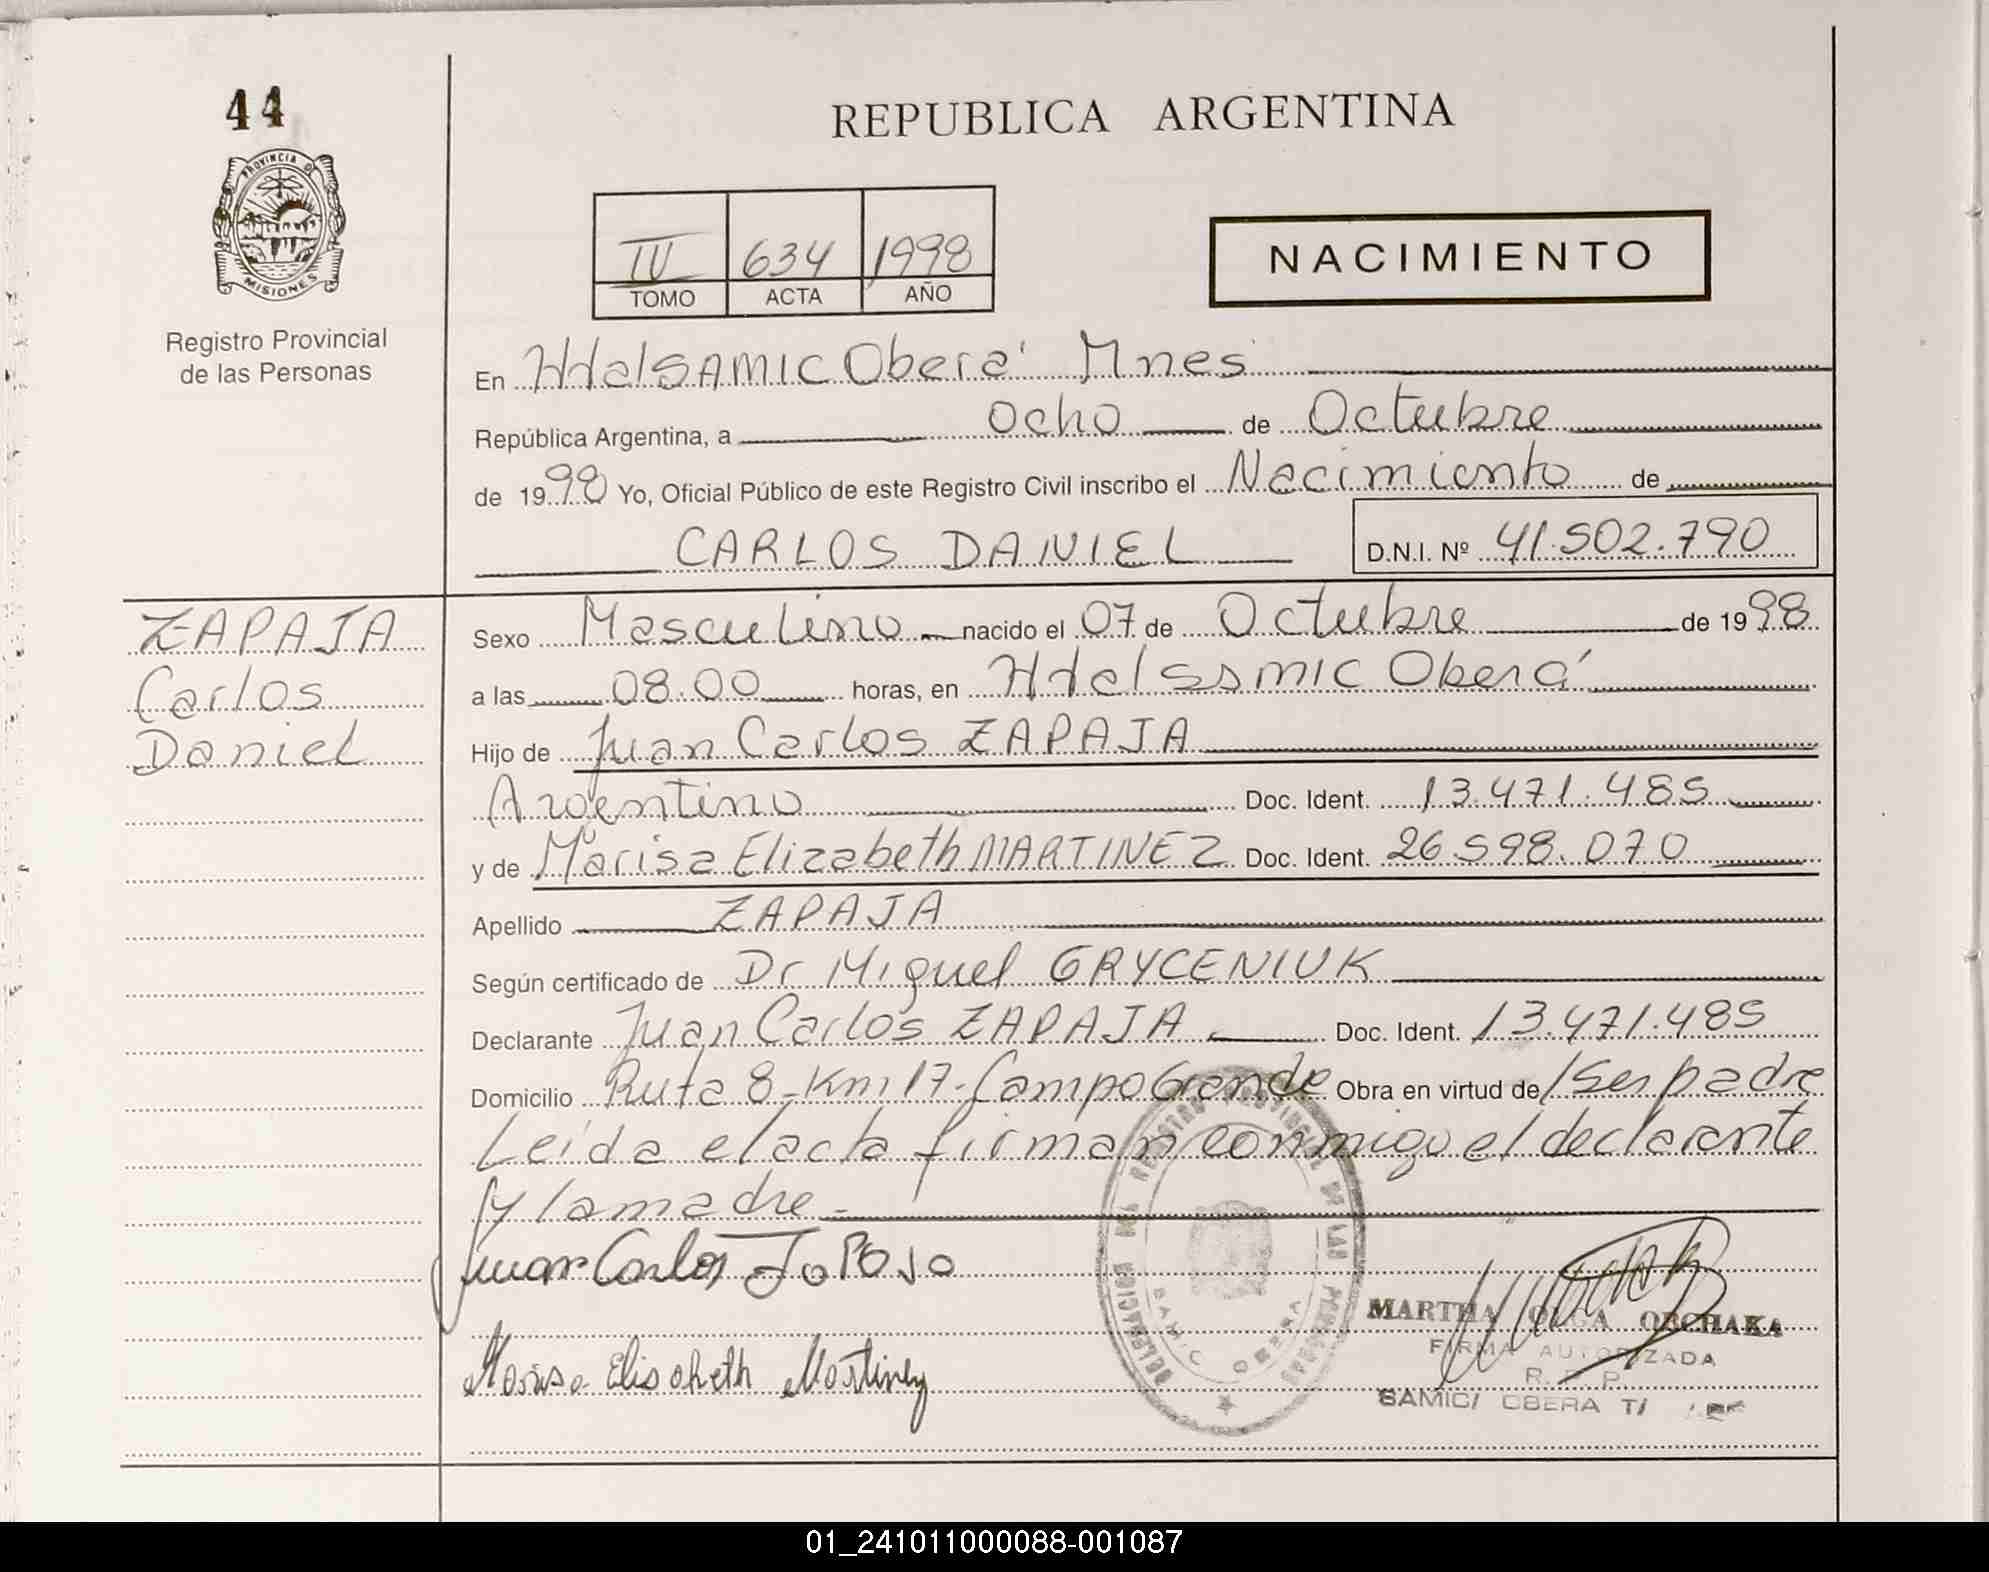 44
PROVINCIA DE
MISIONES
Registro Provincial
de las Personas
REPUBLICA ARGENTINA
IV 634 1998
TOMO ACTA AÑO
NACIMIENTO
En HdelSAMIC Oberá Mnes
República Argentina, a ocho de Octubre
de 1998 Yo, Oficial Público de este Registro Civil inscribo el Nacimiento de
CARLOS DANIEL D.N.I. Nº 41.502.790
ZAPAJA
Carlos
Daniel
Sexo Masculino nacido el 07 de Octubre de 1998
a las 08.00 horas, en Oberá
Hijo de Juan Carlos ZAPAJA
Argentino Doc. Ident. 13.471.485
y de Marisa Elizabeth MARTINEZ Doc. Ident. 26.598.070
Apellido ZAPAJA
Según certificado de Dr Miguel GRYCENIUK
Declarante Juan Carlos ZAPAJA Doc. Ident. 13.471.485
Domicilio Ruta 8-Km 17-Campo Grande Obra en virtud de /Ser padre
Leída el acta firman conmigo el declarante
y la madre.-
Juan Carlos
Marisa Elisabeth Martinez
DELEGACION DEL REGISTRO PROVINCIAL DE LAS PERSONAS
SAMIC OBERA
MARTHA OLGA
FIRMA AUTORIZADA
R. P. P.
SAMIC/ OBERA
01_241011000088-001087